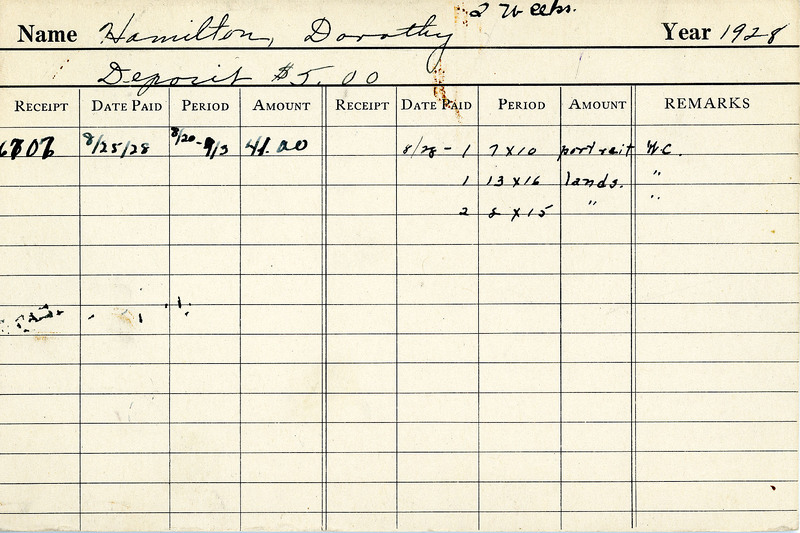 2 Weeks.
Name Hamilton, Dorothy Year 1928
Deposit $5.00
RECEIPT DATE PAID PERIOD AMOUNT RECEIPT DATE PAID PERIOD AMOUNT REMARKS
8/25/28 8/20-9/3 41.00 8/28 - 1 7 X 10 portrait W.C.
1 13 X 16 lands. "
2 8 X 15 " "